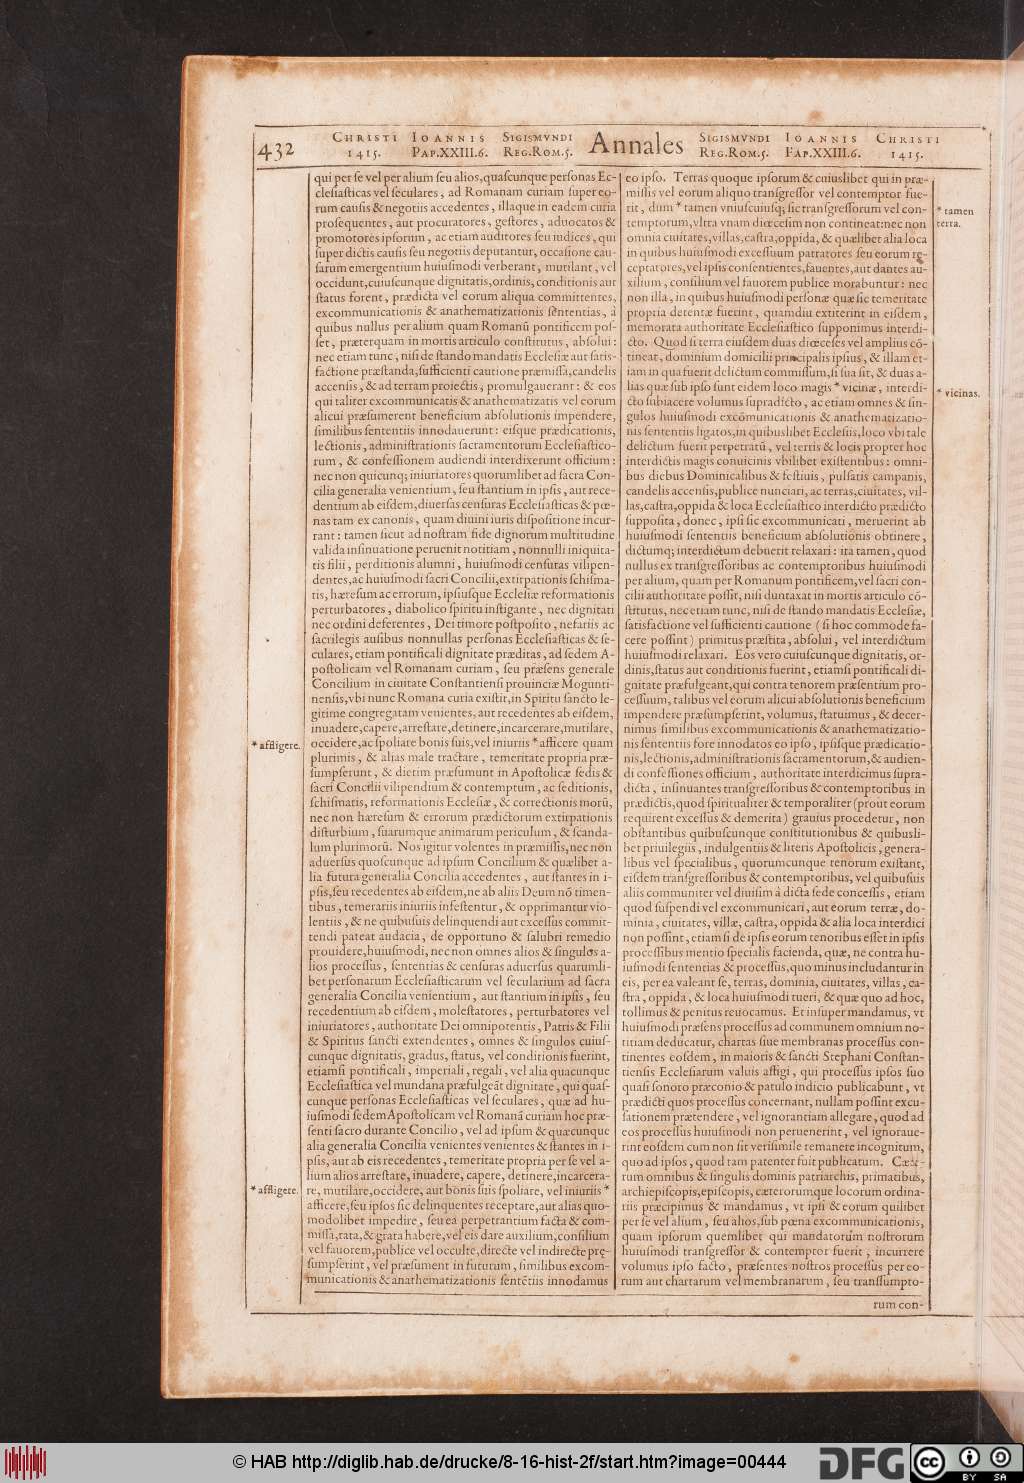 432
CHRISTI IOANNIS SIGISMVNDI Annales SIGISMVNDI IOANNIS CHRISTI
1415. PAP.XXIII.6. REG.ROM.5. REG.ROM.5. PAP.XXIII.6. 1415.
qui per se vel per alium seu alios,quascunque personas Ec-
clesiasticas vel seculares, ad Romanam curiam super eo-
rum causis & negotiis accedentes, illaque in eadem curia
prosequentes, aut procuratores, gestores, aduocatos &
promotores ipsorum, ac etiam auditores seu iudices, qui
super dictis causis seu negotiis deputantur, occasione cau-
sarum emergentium huiusmodi verberant, mutilant, vel
occidunt,cuiuscunque dignitatis,ordinis, conditionis aut
status forent, prædicta vel eorum aliqua committentes,
excommunicationis & anathematizationis sẽntentias, à
quibus nullus per alium quam Romanũ pontificem pos-
set, præterquam in mortis articulo constitutus, absolui:
nec etiam tunc, nisi de stando mandatis Ecclesiæ aut satis-
factione præstanda,sufficienti cautione præmissa,candelis
accensis, & ad terram proiectis, promulgauerant: & eos
qui taliter excommunicatis & anathematizatis vel eorum
alicui præsumerent beneficium absolutionis impendere,
similibus sententiis innodauerunt: eisque prædicationis,
lectionis, administrationis sacramentorum Ecclesiastico-
rum, & confessionem audiendi interdixerunt officium:
nec non quicunq; iniuriatores quorumlibet ad sacra Con-
cilia generalia venientium, seu stantium in ipsis, aut rece-
dentium ab eisdem,diuersas censuras Ecclesiasticas & pœ-
nas tam ex canonis, quam diuini iuris dispositione incur-
rant: tamen sicut ad nostram fide dignorum multitudine
valida insinuatione peruenit notitiam, nonnulli iniquita-
tis filii, perditionis alumni, huiusmodi censuras vilipen-
dentes,ac huiusmodi sacri Concilii,extirpationis schisma-
tis, hæresum ac errorum, ipsiusque Ecclesiæ reformationis
perturbatores, diabolico spiritu instigante, nec dignitati
nec ordini deferentes, Dei timore postposito, nefariis ac
sacrilegis ausibus nonnullas personas Ecclesiasticas & se-
culares, etiam pontificali dignitate præditas, ad sedem A-
postolicam vel Romanam curiam, seu præsens generale
Concilium in ciuitate Constantiensi prouinciæ Mogunti-
nensis,vbi nunc Romana curia existit,in Spiritu sancto le-
gitime congregatam venientes, aut recedentes ab eisdem,
inuadere,capere,arrestare,detinere,incarcerare,mutilare,
occidere,ac spoliare bonis suis,vel iniuriis * afficere quam
plurimis, & alias male tractare, temeritate propria præ-
sumpserunt, & dietim præsumunt in Apostolicæ sedis &
sacri Concilii vilipendium & contemptum, ac seditionis,
schismatis, reformationis Ecclesiæ, & correctionis morũ,
nec non hæresum & errorum prædictorum extirpationis
disturbium, suarumque animarum periculum, & scanda-
lum plurimorũ. Nos igitur volentes in præmissis,nec non
aduersus quoscunque ad ipsum Concilium & quælibet a-
lia futura generalia Concilia accedentes, aut stantes in i-
psis,seu recedentes ab eisdem,ne ab aliis Deum nõ timen-
tibus, temerariis iniuriis infestentur, & opprimantur vio-
lentiis, & ne quibusuis delinquendi aut excessus commit-
tendi pateat audacia, de opportuno & salubri remedio
prouidere,huiusmodi, nec non omnes alios & singulos a-
lios processus, sententias & censuras aduersus quarumli-
bet personarum Ecclesiasticarum vel secularium ad sacra
generalia Concilia venientium, aut stantium in ipsis, seu
recedentium ab eisdem, molestatores, perturbatores vel
iniuriatores, authoritate Dei omnipotentis, Patris & Filii
& Spiritus sancti extendentes, omnes & singulos cuius-
cunque dignitatis, gradus, status, vel conditionis fuerint,
etiamsi pontificali, imperiali, regali, vel alia quacunque
Ecclesiastica vel mundana præfulgeãt dignitate, qui quas-
cunque personas Ecclesiasticas vel seculares, quæ ad hu-
iusmodi sedem Apostolicam vel Romanã curiam hoc præ-
senti sacro durante Concilio, vel ad ipsum & quæcunque
alia generalia Concilia venientes venientes & stantes in i-
psis, aut ab eis recedentes, temeritate propria per se vel a-
lium alios arrestare, inuadere, capere, detinere,incarcera-
re, mutilare,occidere, aut bonis suis spoliare, vel iniuriis *
afficere,seu ipsos sic delinquentes receptare,aut alias quo-
modolibet impedire, seu ea perpetrantium facta & com-
missa,rata,& grata habere,vel eis dare auxilium,consilium
vel fauorem,publice vel occulte,directe vel indirecte prę-
sumpserint, vel præsument in futurum, similibus excom-
municationis & anathematizationis sentẽtiis innodamus
* affligere.
* affligere.
eo ipso. Terras quoque ipsorum & cuiuslibet qui in præ-
missis vel eorum aliquo transgressor vel contemptor fue-
rit, dum * tamen vniuscuiusq; sic transgressorum vel con-
temptorum,vltra vnam diœcesim non contineat:nec non
omnia ciuitates,villas,castra,oppida, & quælibet alia loca
in quibus huiusmodi excessuum patratores seu eorum re-
ceptatores,vel ipsis consentientes,fauentes,aut dantes au-
xilium, consilium vel fauorem publice morabuntur: nec
non illa, in quibus huiusmodi personæ quæ sic temeritate
propria detentæ fuerint, quamdiu extiterint in eisdem,
memorata authoritate Ecclesiastico supponimus interdi-
cto. Quod si terra eiusdem duas diœceses vel amplius cõ-
tineat, dominium domicilii principalis ipsius, & illam et-
iam in qua fuerit delictum commissum,si sua sit, & duas a-
lias quæ sub ipso sunt eidem loco magis * vicinæ, interdi-
cto subiacere volumus supradicto, ac etiam omnes & sin-
gulos huiusmodi excõmunicationis & anathematizatio-
nis sententiis ligatos,in quibuslibet Ecclesiis,loco vbi tale
delictum fuerit perpetratũ, vel terris & locis propter hoc
interdictis magis conuicinis vbilibet existentibus: omni-
bus diebus Dominicalibus & festiuis, pulsatis campanis,
candelis accensis,publice nunciari, ac terras,ciuitates, vil-
las,castra,oppida & loca Ecclesiastico interdicto prædicto
supposita, donec, ipsi sic excommunicati, meruerint ab
huiusmodi sententiis beneficium absolutionis obtinere,
dictumq; interdictum debuerit relaxari: ita tamen, quod
nullus ex transgressoribus ac contemptoribus huiusmodi
per alium, quam per Romanum pontificem,vel sacri con-
cilii authoritate possit, nisi duntaxat in mortis articulo cõ-
stitutus, nec etiam tunc, nisi de stando mandatis Ecclesiæ,
satisfactione vel sufficienti cautione (si hoc commode fa-
cere possint) primitus præstita, absolui, vel interdictum
huiusmodi relaxari. Eos vero cuiuscunque dignitatis, or-
dinis,status aut conditionis fuerint, etiamsi pontificali di-
gnitate præfulgeant,qui contra tenorem præsentium pro-
cessuum, talibus vel eorum alicui absolutionis beneficium
impendere præsumpserint, volumus, statuimus, & decer-
nimus similibus excommunicationis & anathematizatio-
nis sententiis fore innodatos eo ipso, ipsisque prædicatio-
nis,lectionis,administrationis sacramentorum,& audien-
di confessiones officium, authoritate interdicimus supra-
dicta, insinuantes transgressoribus & contemptoribus in
prædictis,quod spiritualiter & temporaliter (prout eorum
requirent excessus & demerita) grauius procedetur, non
obstantibus quibuscunque constitutionibus & quibusli-
bet priuilegiis, indulgentiis & literis Apostolicis, genera-
libus vel specialibus, quorumcunque tenorum existant,
eisdem transgressoribus & contemptoribus, vel quibusuis
aliis communiter vel diuisim à dicta sede concessis, etiam
quod suspendi vel excommunicari, aut eorum terræ, do-
minia, ciuitates, villæ, castra, oppida & alia loca interdici
non possint, etiam si de ipsis eorum tenoribus esset in ipsis
processibus mentio specialis facienda, quæ, ne contra hu-
iusmodi sententias & processus,quo minus includantur in
eis, per ea valeant se, terras, dominia, ciuitates, villas, ca-
stra, oppida, & loca huiusmodi tueri, & quæ quo ad hoc,
tollimus & penitus reuocamus. Et insuper mandamus, vt
huiusmodi præsens processus ad communem omnium no-
titiam deducatur, chartas siue membranas processus con-
tinentes eosdem, in maioris & sancti Stephani Constan-
tiensis Ecclesiarum valuis affigi, qui processus ipsos suo
quasi sonoro præconio & patulo indicio publicabunt, vt
prædicti quos processus concernant, nullam possint excu-
sationem prætendere, vel ignorantiam allegare, quod ad
eos processus huiusmodi non peruenerint, vel ignoraue-
rint eosdem cum non sit verisimile remanere incognitum,
quo ad ipsos, quod tam patenter fuit publicatum. Cæte-
rum omnibus & singulis dominis patriarchis, primatibus,
archiepiscopis,episcopis, cæterorumque locorum ordina-
riis præcipimus & mandamus, vt ipsi & eorum quilibet
per se vel alium, seu alios,sub pœna excommunicationis,
quam ipsorum quemlibet qui mandatorũm nostrorum
huiusmodi transgressor & contemptor fuerit, incurrere
volumus ipso facto, præsentes nostros processus per eo-
rum aut chartarum vel membranarum, seu transsumpto-
rum con-
* tamen
terra.
* vicinas.
© HAB http://diglib.hab.de/drucke/8-16-hist-2f/start.htm?image=00444
DFG
cc BY SA